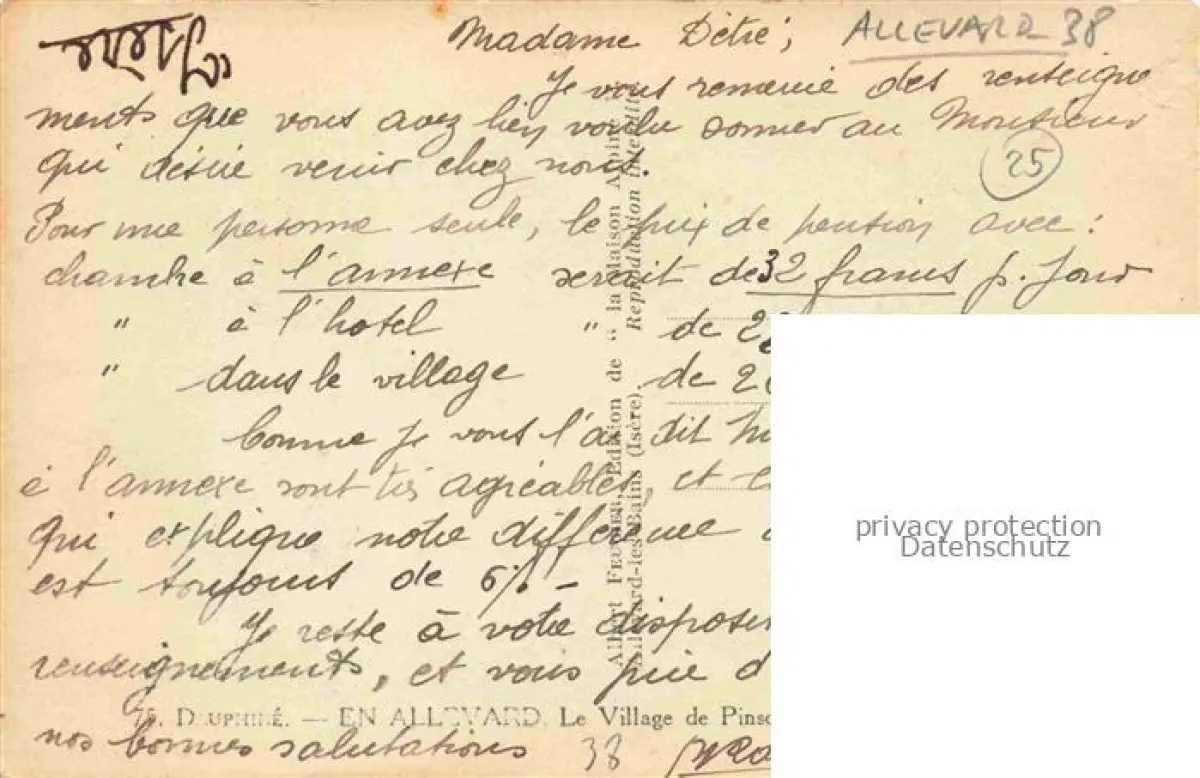 Isère
Madame Détré, ALLEVARD 38
Je vous remercie des renseigne
ments que vous avez bien voulu donner au Monsieur
qui désire venir chez nous.
25
Pour une personne seule, le prix de pension avec :
chambre à l'annexe serait de 32 francs p. jour
" à l'hotel " de 2
" dans le village de 2
Comme je vous l'ai dit
à l'annexe sont très agréables, et
qui explique notre différence
est toujours de 6% -
Je reste à votre
renseignements, et vous prie
75. DAUPHINÉ. — EN ALLEVARD. Le Village de
nos bonnes salutations 38
Albert FEUNIER, Edition de " la Maison Alpine "
Allevard-les-Bains (Isère). Reproduction interdite
privacy protection
Datenschutz